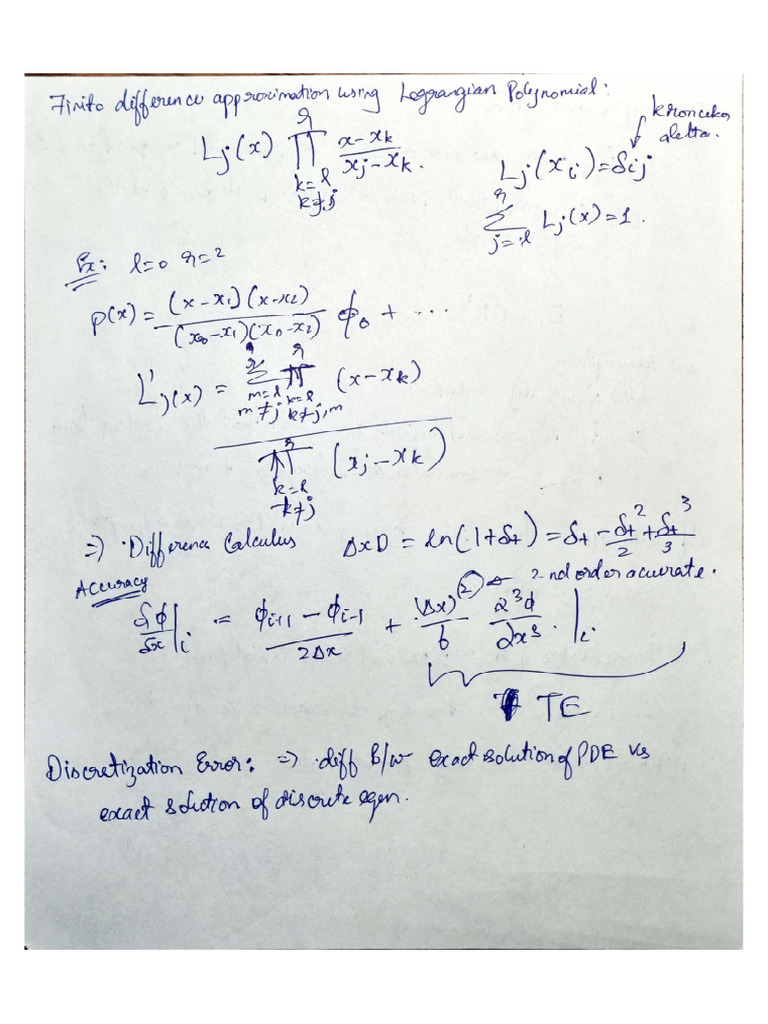 Finite difference approximation using Loggrangian Polynomial:
Lj(x) ∏_{k=l, k≠j}^{r} (x-xk)/(xj-xk).
kronecker delta.
Lj(xi)=δij
∑_{j=l}^{r} Lj(x)=1.
Ex: l=0 r=2
P(x)= (x-x1)(x-x2)/(x0-x1)(x0-x2) ϕ0 + ...
L'j(x) = ∑_{m=l, m≠j}^{r} ∏_{k=l, k≠j,m}^{r} (x-xk) / ∏_{k=l, k≠j}^{r} (xj-xk)
=> Difference Calculus ΔxD = ln(1+δ+) = δ+ - δ+^2/2 + δ+^3/3
Accuracy
2nd order acurrate.
δϕ/δx|i = (ϕi+1 - ϕi-1)/2Δx + (Δx)^(2)/6 ∂^3ϕ/∂x^3 |i.
TE
Discretization Error: => diff B/w exact solution of PDE vs
exact solution of discrete eqen.